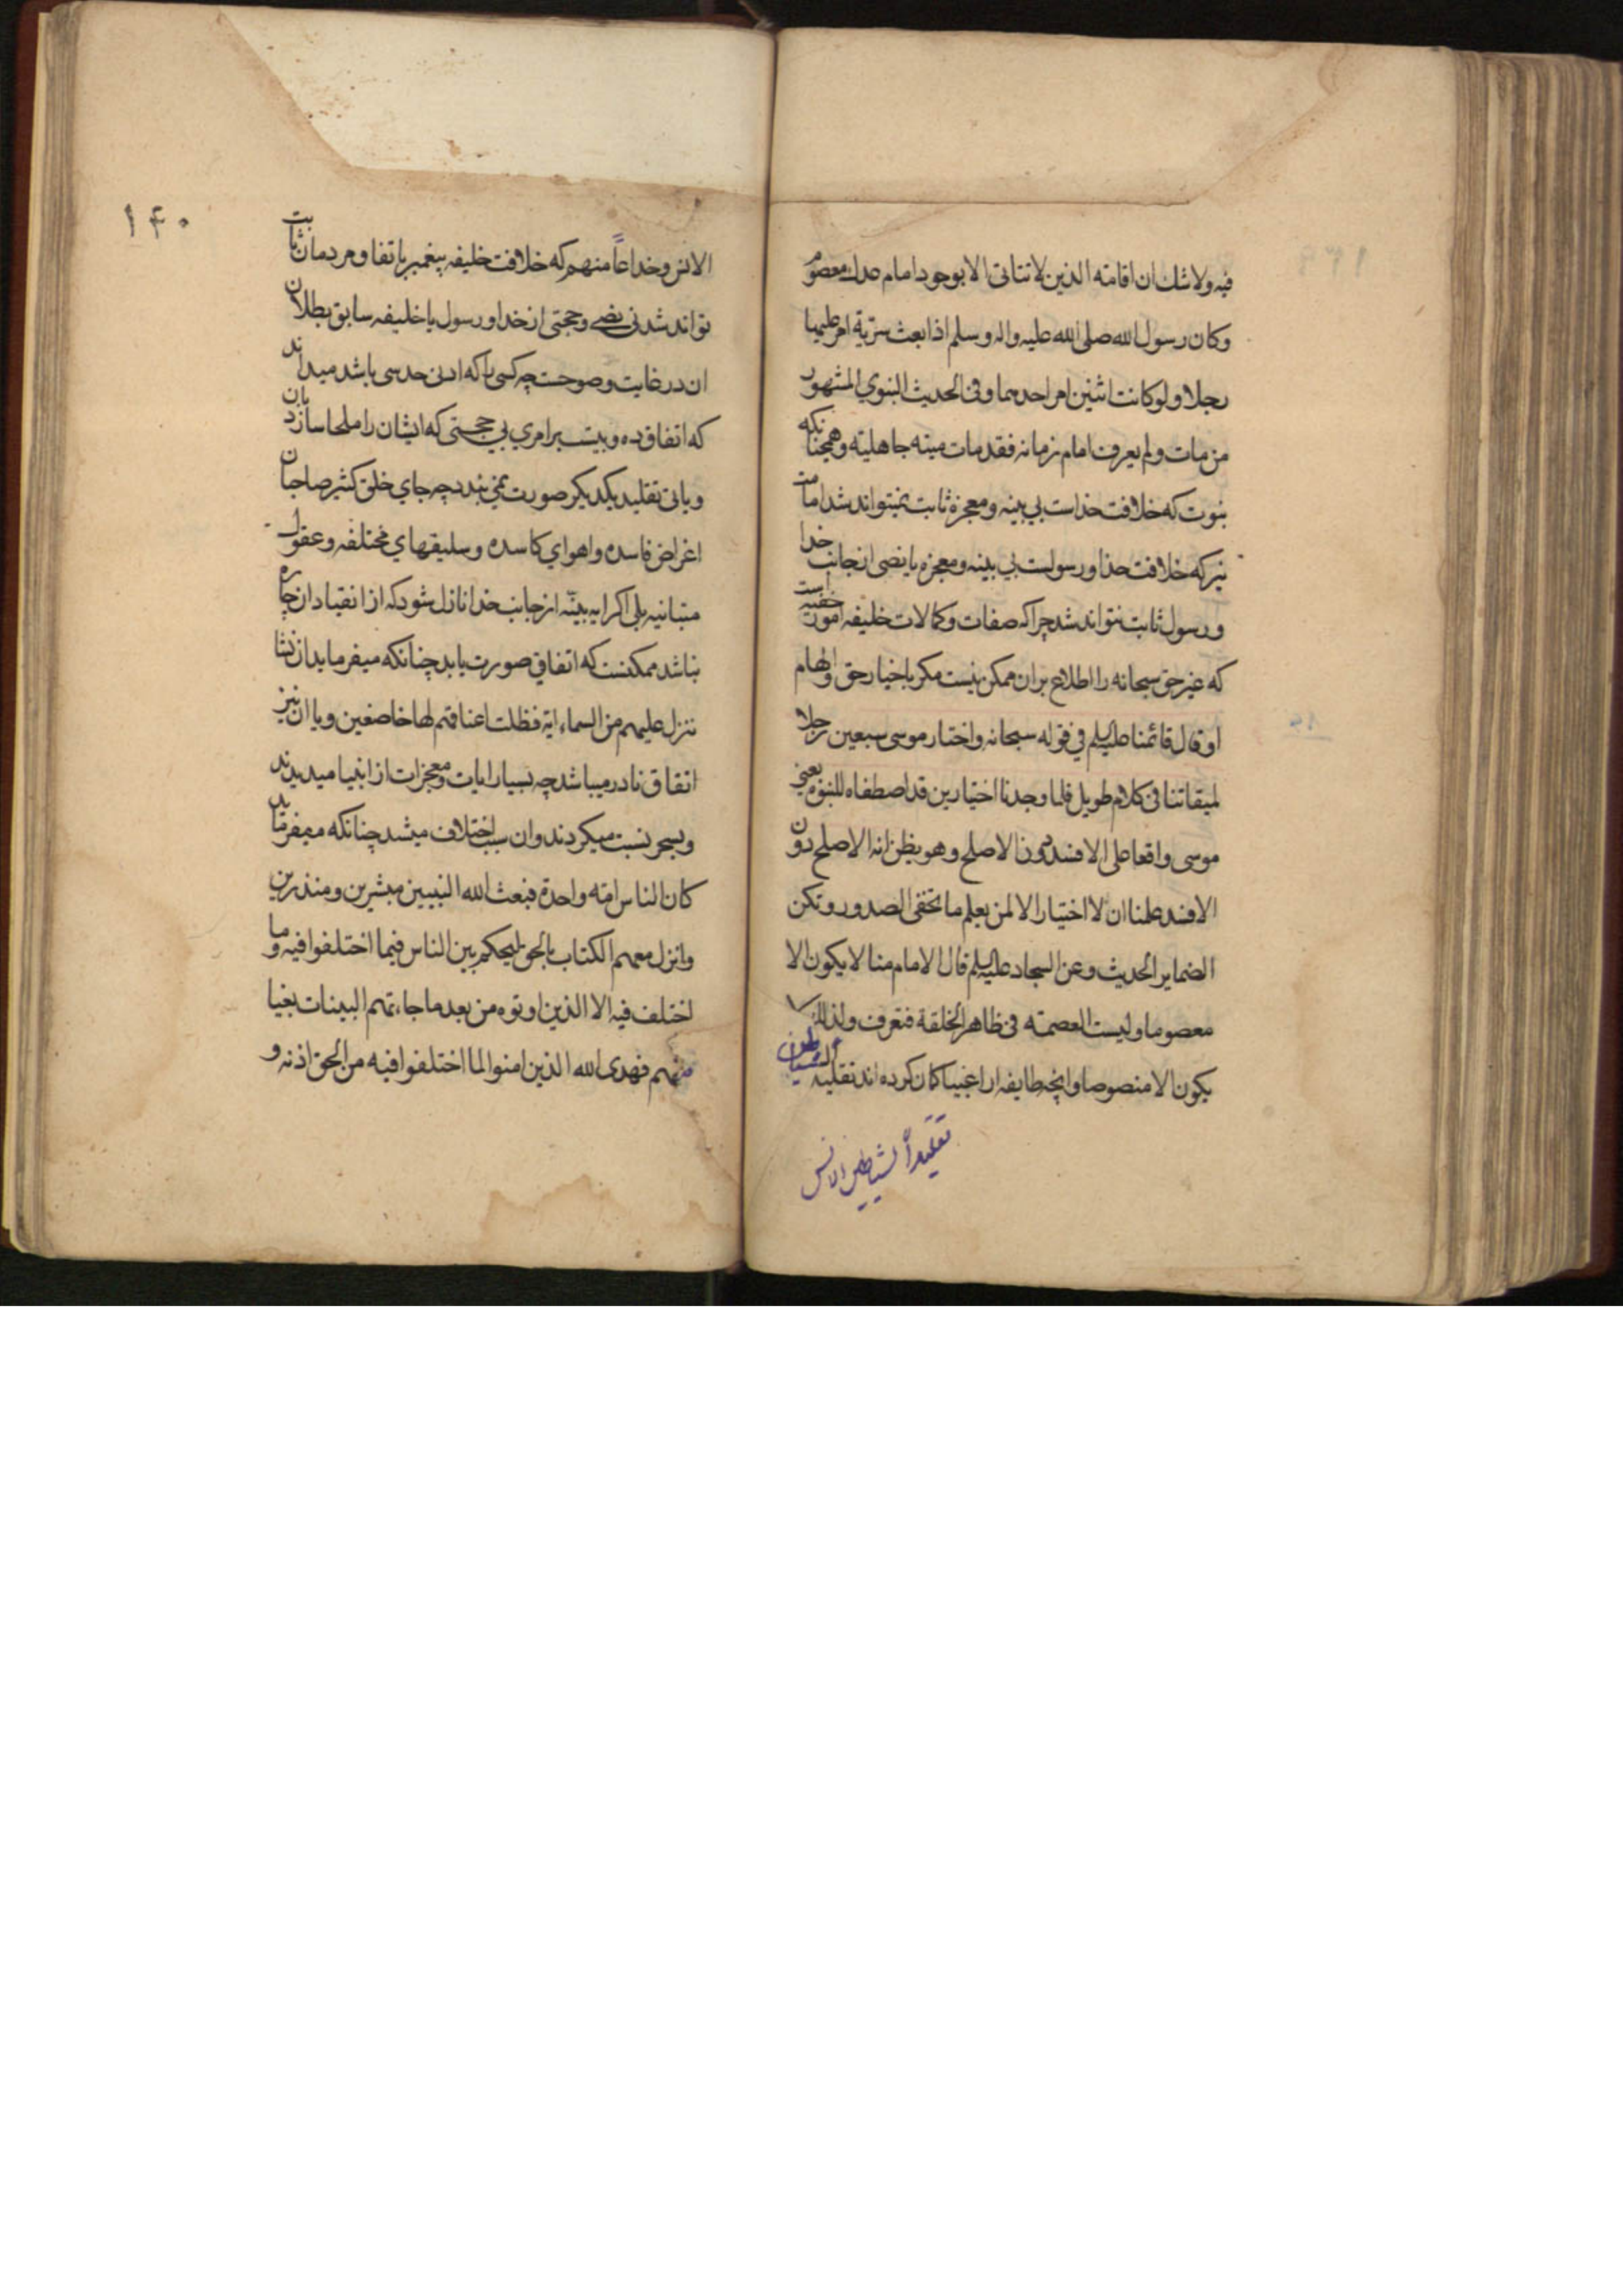 فیه ولا شك ان اقامته الدین لا تتاتی الا بوجود امام عدل معصوم
وکان رسول الله صلی الله علیه واله وسلم اذا بعث سریة امر علیها
رجلا ولو کانت اثنین امر احدهما وفی الحدیث النبوي المشهور
من مات ولم یعرف امام زمانه فقد مات میته جاهلیته وهمچنانکه
نبوت که خلافت خداست بی بینه ومعجزه ثابت نمیتواند شد امامت
نیز که خلافت خدا ورسولست بی بینه ومعجزه یا نصی از جانب خدا
ورسول ثابت نتواند شد چرا که صفات وکمالات خلیفه امور خفیه است
که غیر حق سبحانه را اطلاع بران ممکن نیست مکر باخبار حق والهام
او قال قائمنا علیه السلم فی قوله سبحانه واختار موسی سبعین رجلا
لمیقاتنا فی کلام طویل فلما وجدنا اختیار من قد اصطفاه للنبوه یعنی
موسی واقعا علی الافسد دون الاصلح وهو یظن انه الاصلح دون
الافسد علمنا ان لا اختیار الا لمن یعلم ما تخفی الصدور وتکن
الضمایر الحدیث وعن السجاد علیه السلم قال الامام منا لا یکون الا
معصوما ولیست العصمته فی ظاهر الخلقة فتعرف ولذلك لا
یکون الا منصوصا وانچه طایفه از اغبیا کمان کرده اند تقلید الشیاطین
تقلیداً لشیاطین الانس
۱۴۰
الانس وخداعاً منهم که خلافت خلیفه پیغمبر باتفاق مردمان ثابت
تواند شد نی نصی وحجتی از خدا ورسول یا خلیفه سابق بطلان
ان در غایت وضوحست چه کسی را که ادنی حدسی باشد میداند
که اتفاق ده وبیست بر امری بی حجتی که ایشان را ملجا سازد بان
وبانی تقلید یکدیکر صورت نمی بندد چه جای خلق کثیر صاحبان
اغراض فاسده واهوای کاسده وسلیقهای مختلفه وعقول
متبانیه بلی اکر ایه بینّه از جانب خدا نازل شود که از انقیاد ان چاره
نباشد ممکنست که اتفاقی صورت یابد چنانکه میفرماید ان نشا
ننزل علیهم من السماء ایة فظلت اعناقهم لها خاضعین وبا ان نیز
اتفاق نادر میباشد چه بسیار ایات ومعجزات از انبیا میدیدند
وبسحر نسبت میکردند وان سبب اختلاف میشد چنانکه میفرماید
کان الناس امته واحدة فبعث الله النبیین مبشرین ومنذرین
وانزل معهم الکتاب بالحق لیحکم بین الناس فیما اختلفوا فیه وما
اختلف فیه الا الذین اوتوه من بعد ما جاءتهم البینات بغیا
منهم فهدی الله الذین امنوا لما اختلفوا فیه من الحق اذنه و